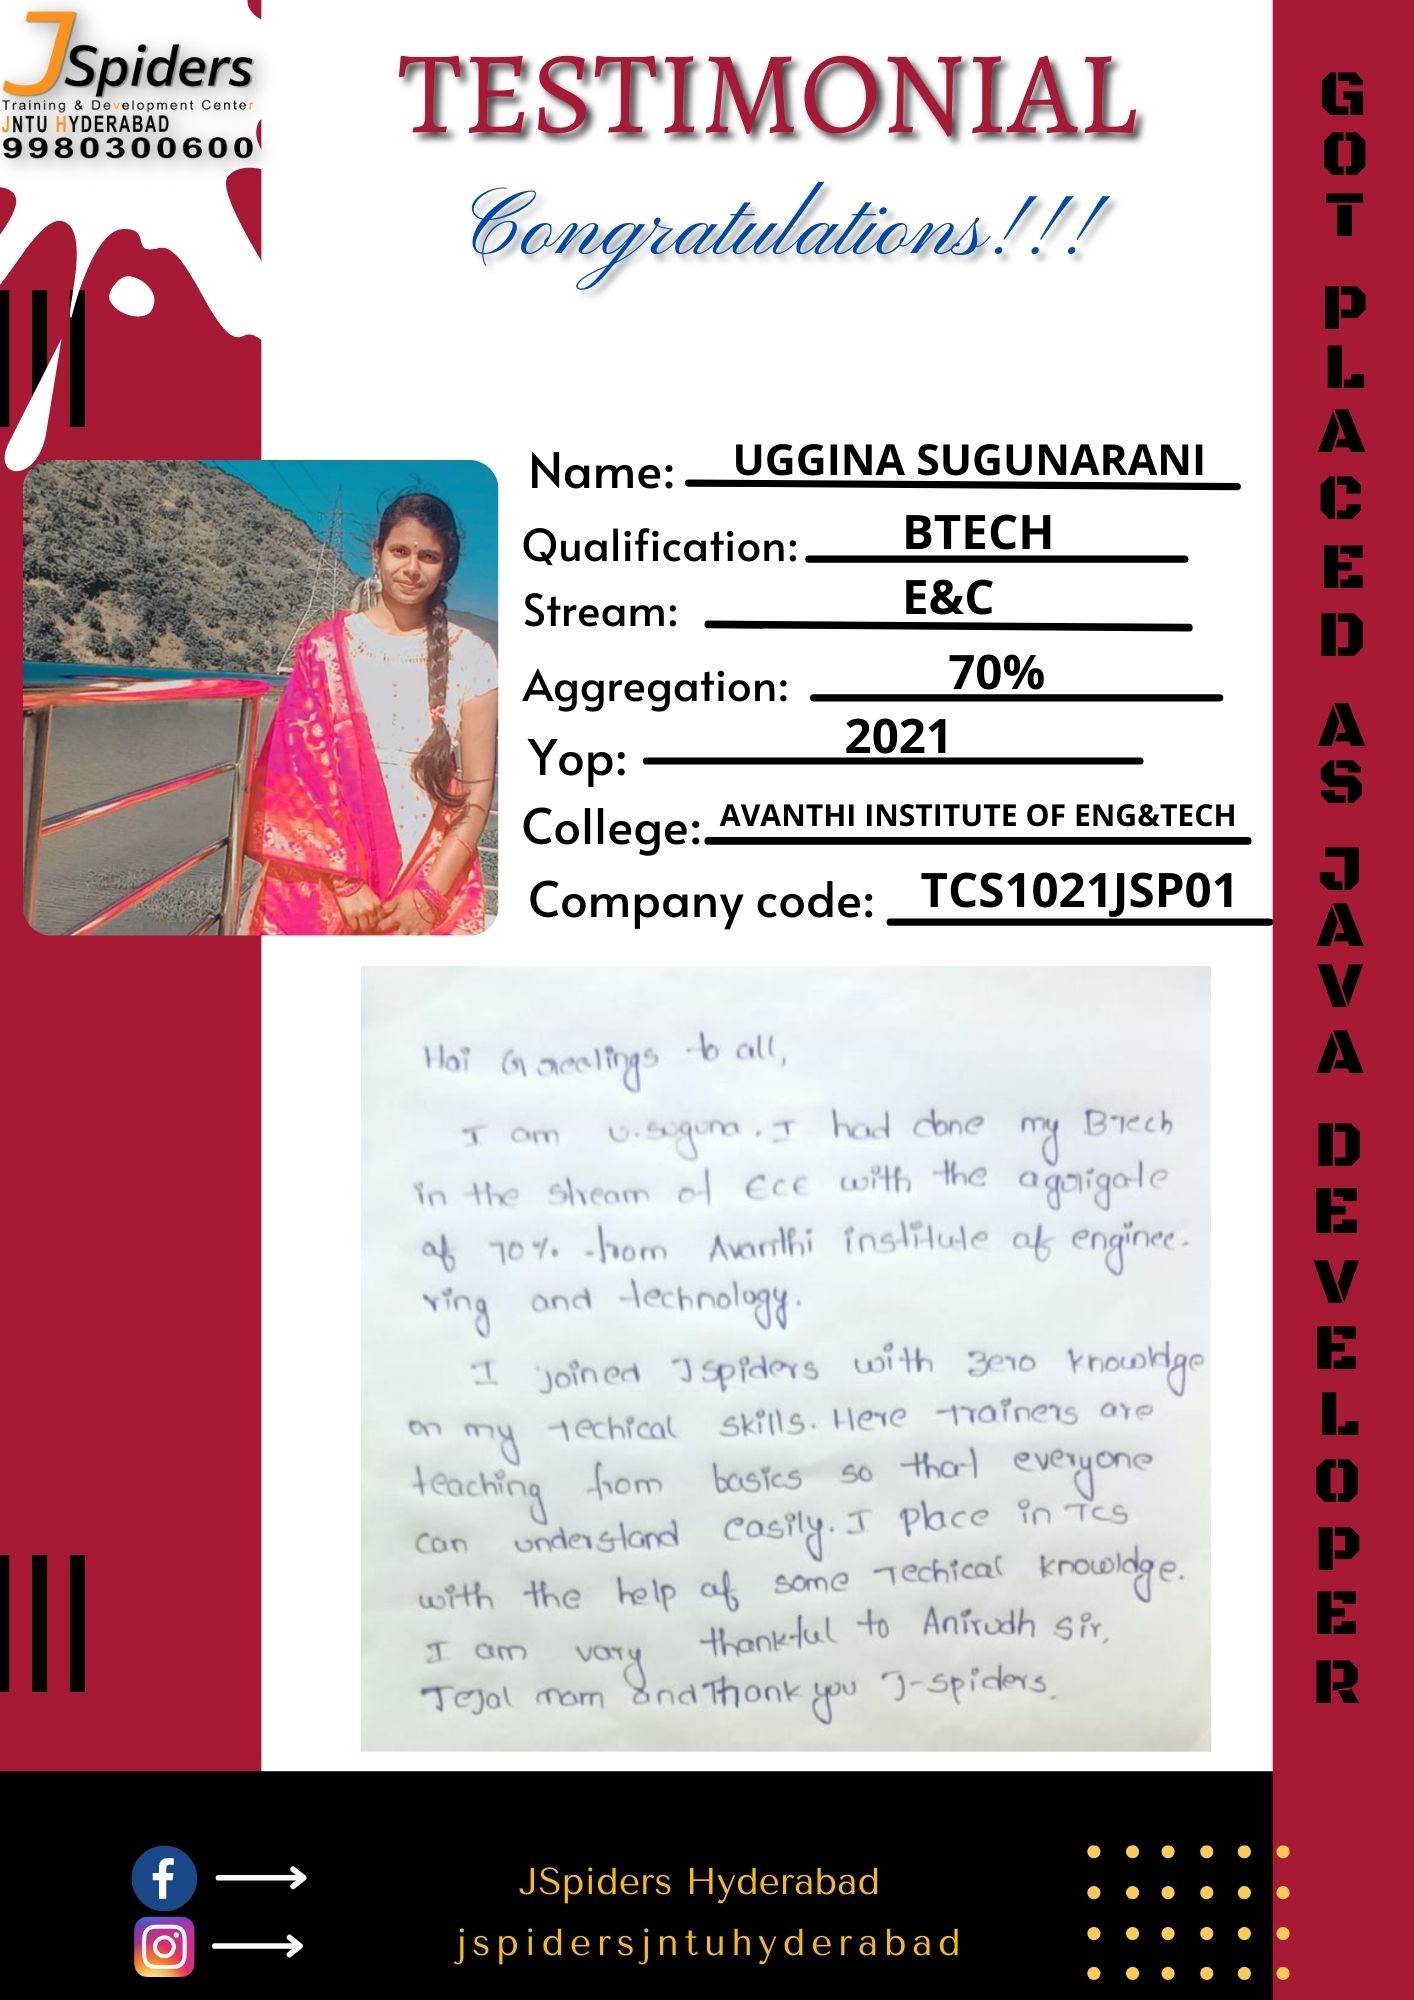 JSpiders
Training & Development Center
JNTU HYDERABAD
9980300600
TESTIMONIAL
Congratulations!!!
Name: UGGINA SUGUNARANI
Qualification: BTECH
Stream: E&C
Aggregation: 70%
Yop: 2021
College: AVANTHI INSTITUTE OF ENG&TECH
Company code: TCS1021JSP01
Hai Greetings to all,
I am U.suguna. I had done my BTech
in the stream of ECE with the aggrigate
of 70% from Avanthi institute of enginee-
ring and technology.
I joined Jspiders with zero knowldge
on my techical skills. Here trainers are
teaching from basics so that everyone
can understand easily. I place in Tcs
with the help of some Techical knowldge.
I am vary thankful to Anirudh sir,
Tejal mam and Thank you J-spiders.
GOT PLACED AS JAVA DEVELOPER
JSpiders Hyderabad
jspidersjntuhyderabad